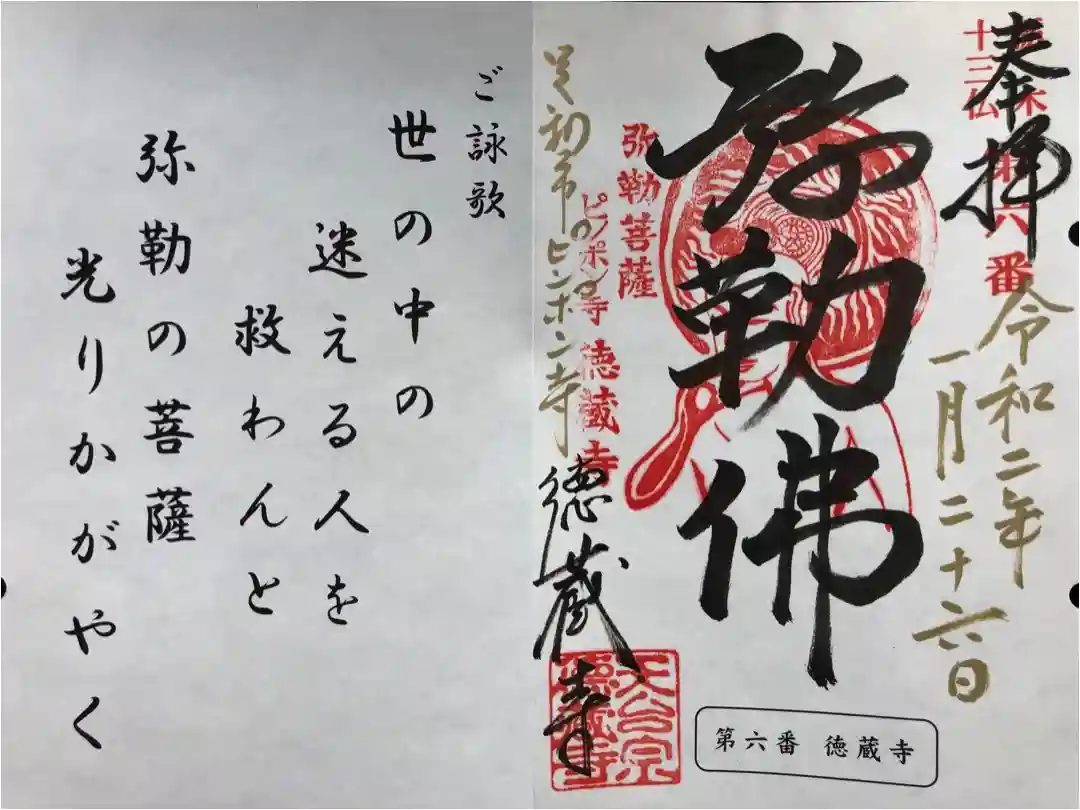 奉拝
十三仏
第六番
令和二年
一月二十六日
弥勒佛
弥勒菩薩
徳蔵寺
ピンポン寺
徳蔵寺
天台宗
徳蔵寺
第六番 徳蔵寺
ご詠歌
世の中の
迷える人を
救わんと
弥勒の菩薩
光りかがやく